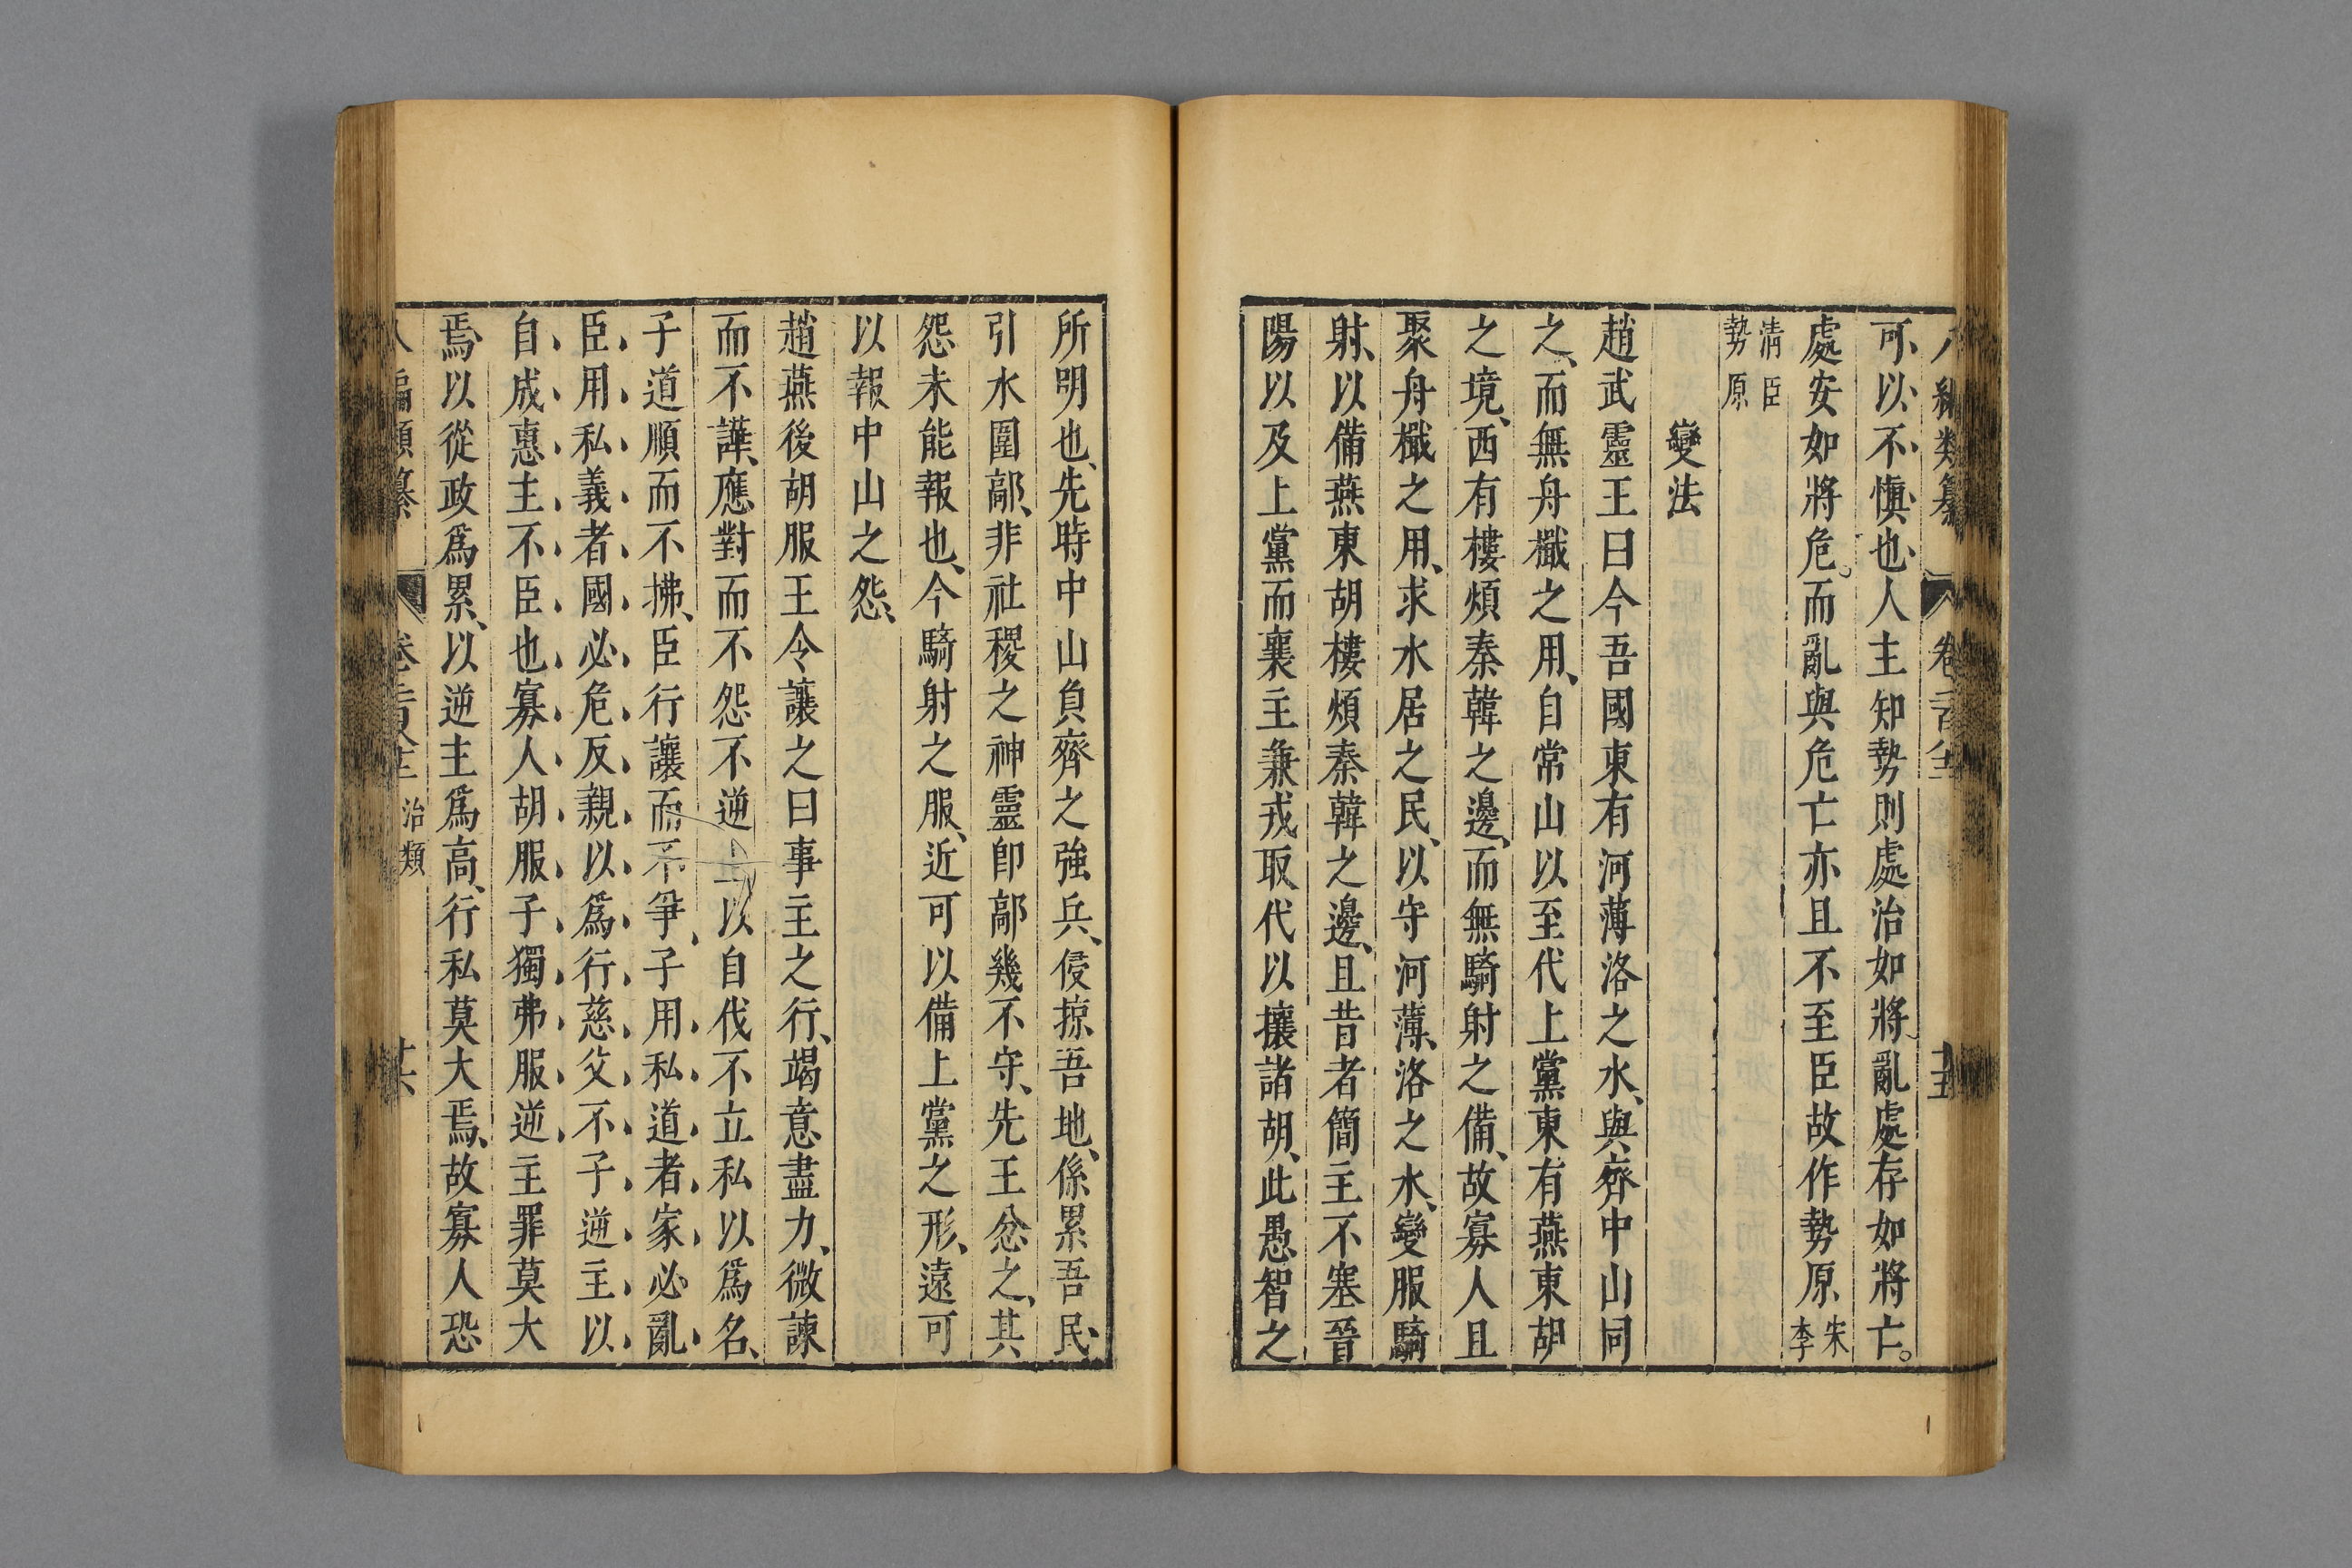 八編類纂 卷二百 十五
可以不慎也、人主知勢則處治如將亂處存如將亡。
處安如將危。而亂與危亡亦且不至臣故作勢原 宋李
清臣勢原
變法
趙武靈王曰今吾國東有河薄洛之水、與齊中山同
之、而無舟檝之用、自常山以至代上黨東有燕東胡
之境、西有樓煩秦韓之邊、而無騎射之備、故寡人且
聚舟檝之用、求水居之民、以守河薄洛之水、變服騎
射、以備燕東胡樓煩秦韓之邊、且昔者簡主不塞晉
陽以及上黨而襄主兼戎取代以攘諸胡、此愚智之
所明也、先時中山負齊之強兵、侵掠吾地、係累吾民、
引水圍鄗、非社稷之神靈卽鄗幾不守、先王忿之、其
怨未能報也、今騎射之服、近可以備上黨之形、遠可
以報中山之怨、
趙燕後胡服王令讓之曰事主之行、竭意盡力、微諫
而不譁、應對而不怨不逆上以自伐不立私以爲名、
子道順而不拂、臣行讓而不爭、子用私道者家必亂、
臣用私義者國必危、反親以爲行慈父不子逆主以
自成惠主不臣也、寡人胡服子獨弗服逆主罪莫大
焉、以從政爲累、以逆主爲高、行私莫大焉、故寡人恐
八編類纂 卷 治類 十六